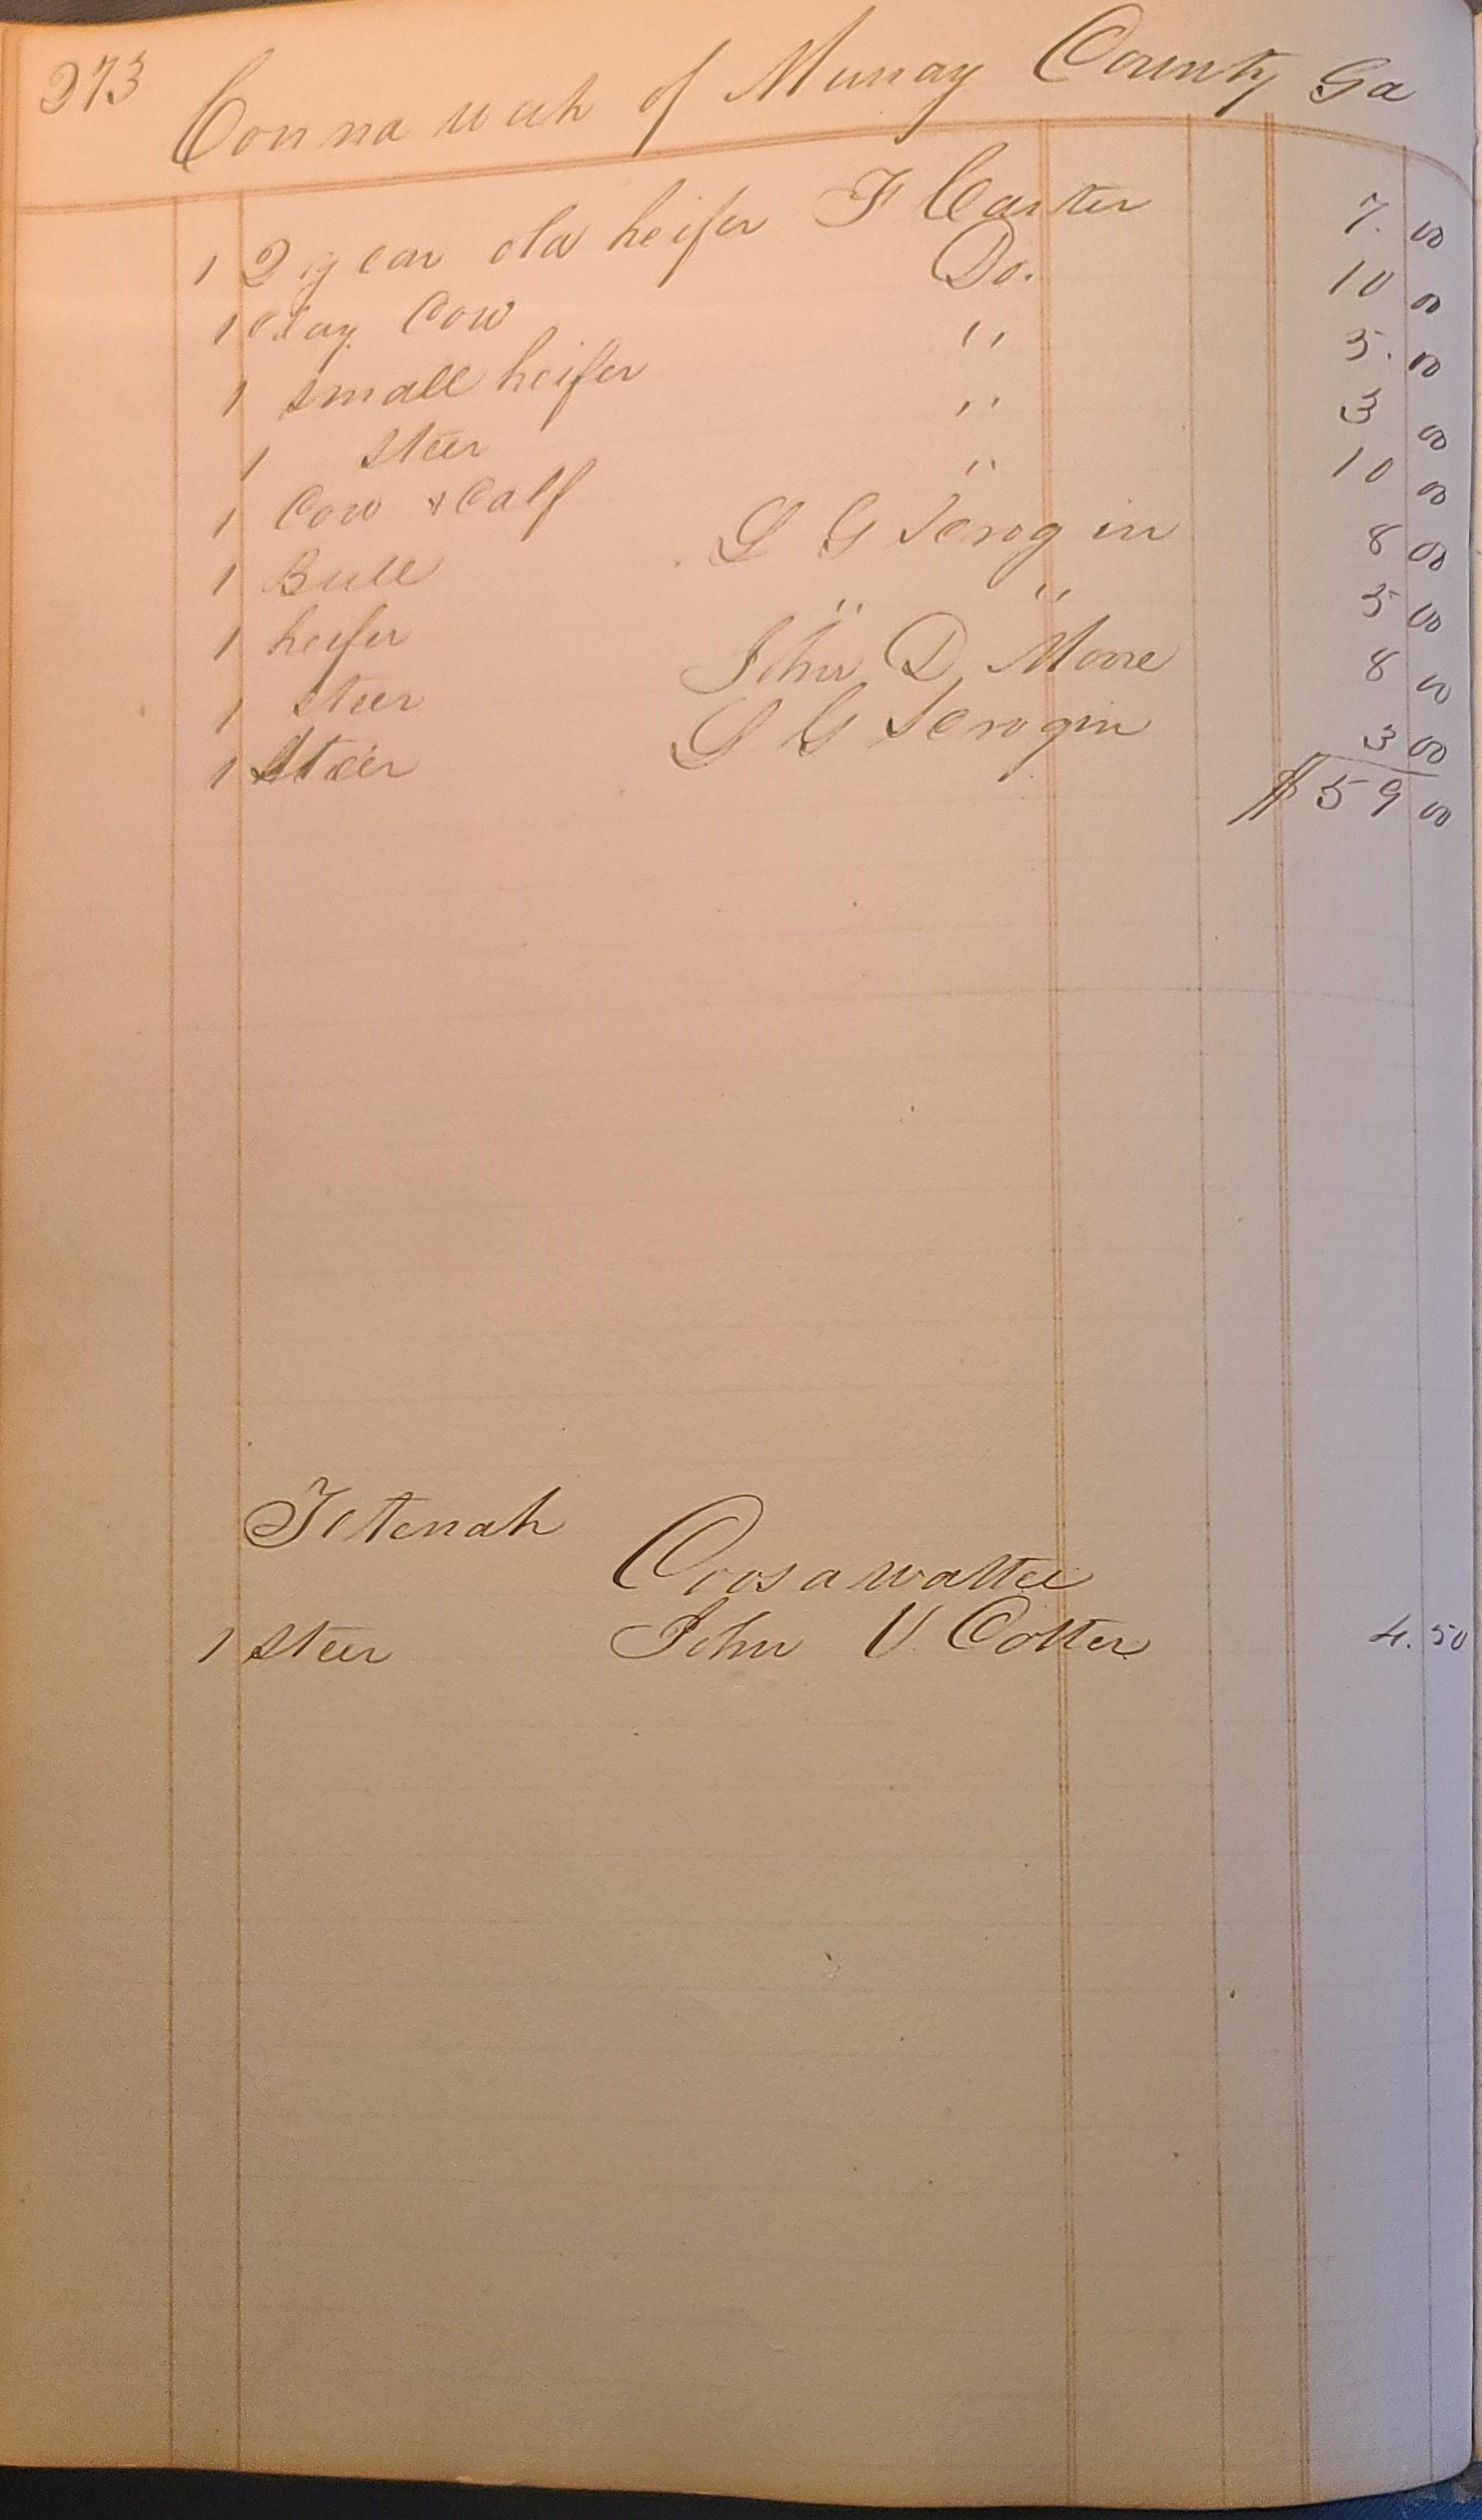 273 Connawah of Murray County Ga
1 2 year old heifer F Carter 7.00
1 Cow Do. 10 00
1 small heifer " 5.00
1 steer " 3 00
1 Cow & Calf " 10 00
1 Bull S G 8 00
1 heifer " " 5 00
1 steer John D Moore 8 00
1 Steer S G 3 00
$59 00
Coosawattee
1 steer John V. Cotter 4.50